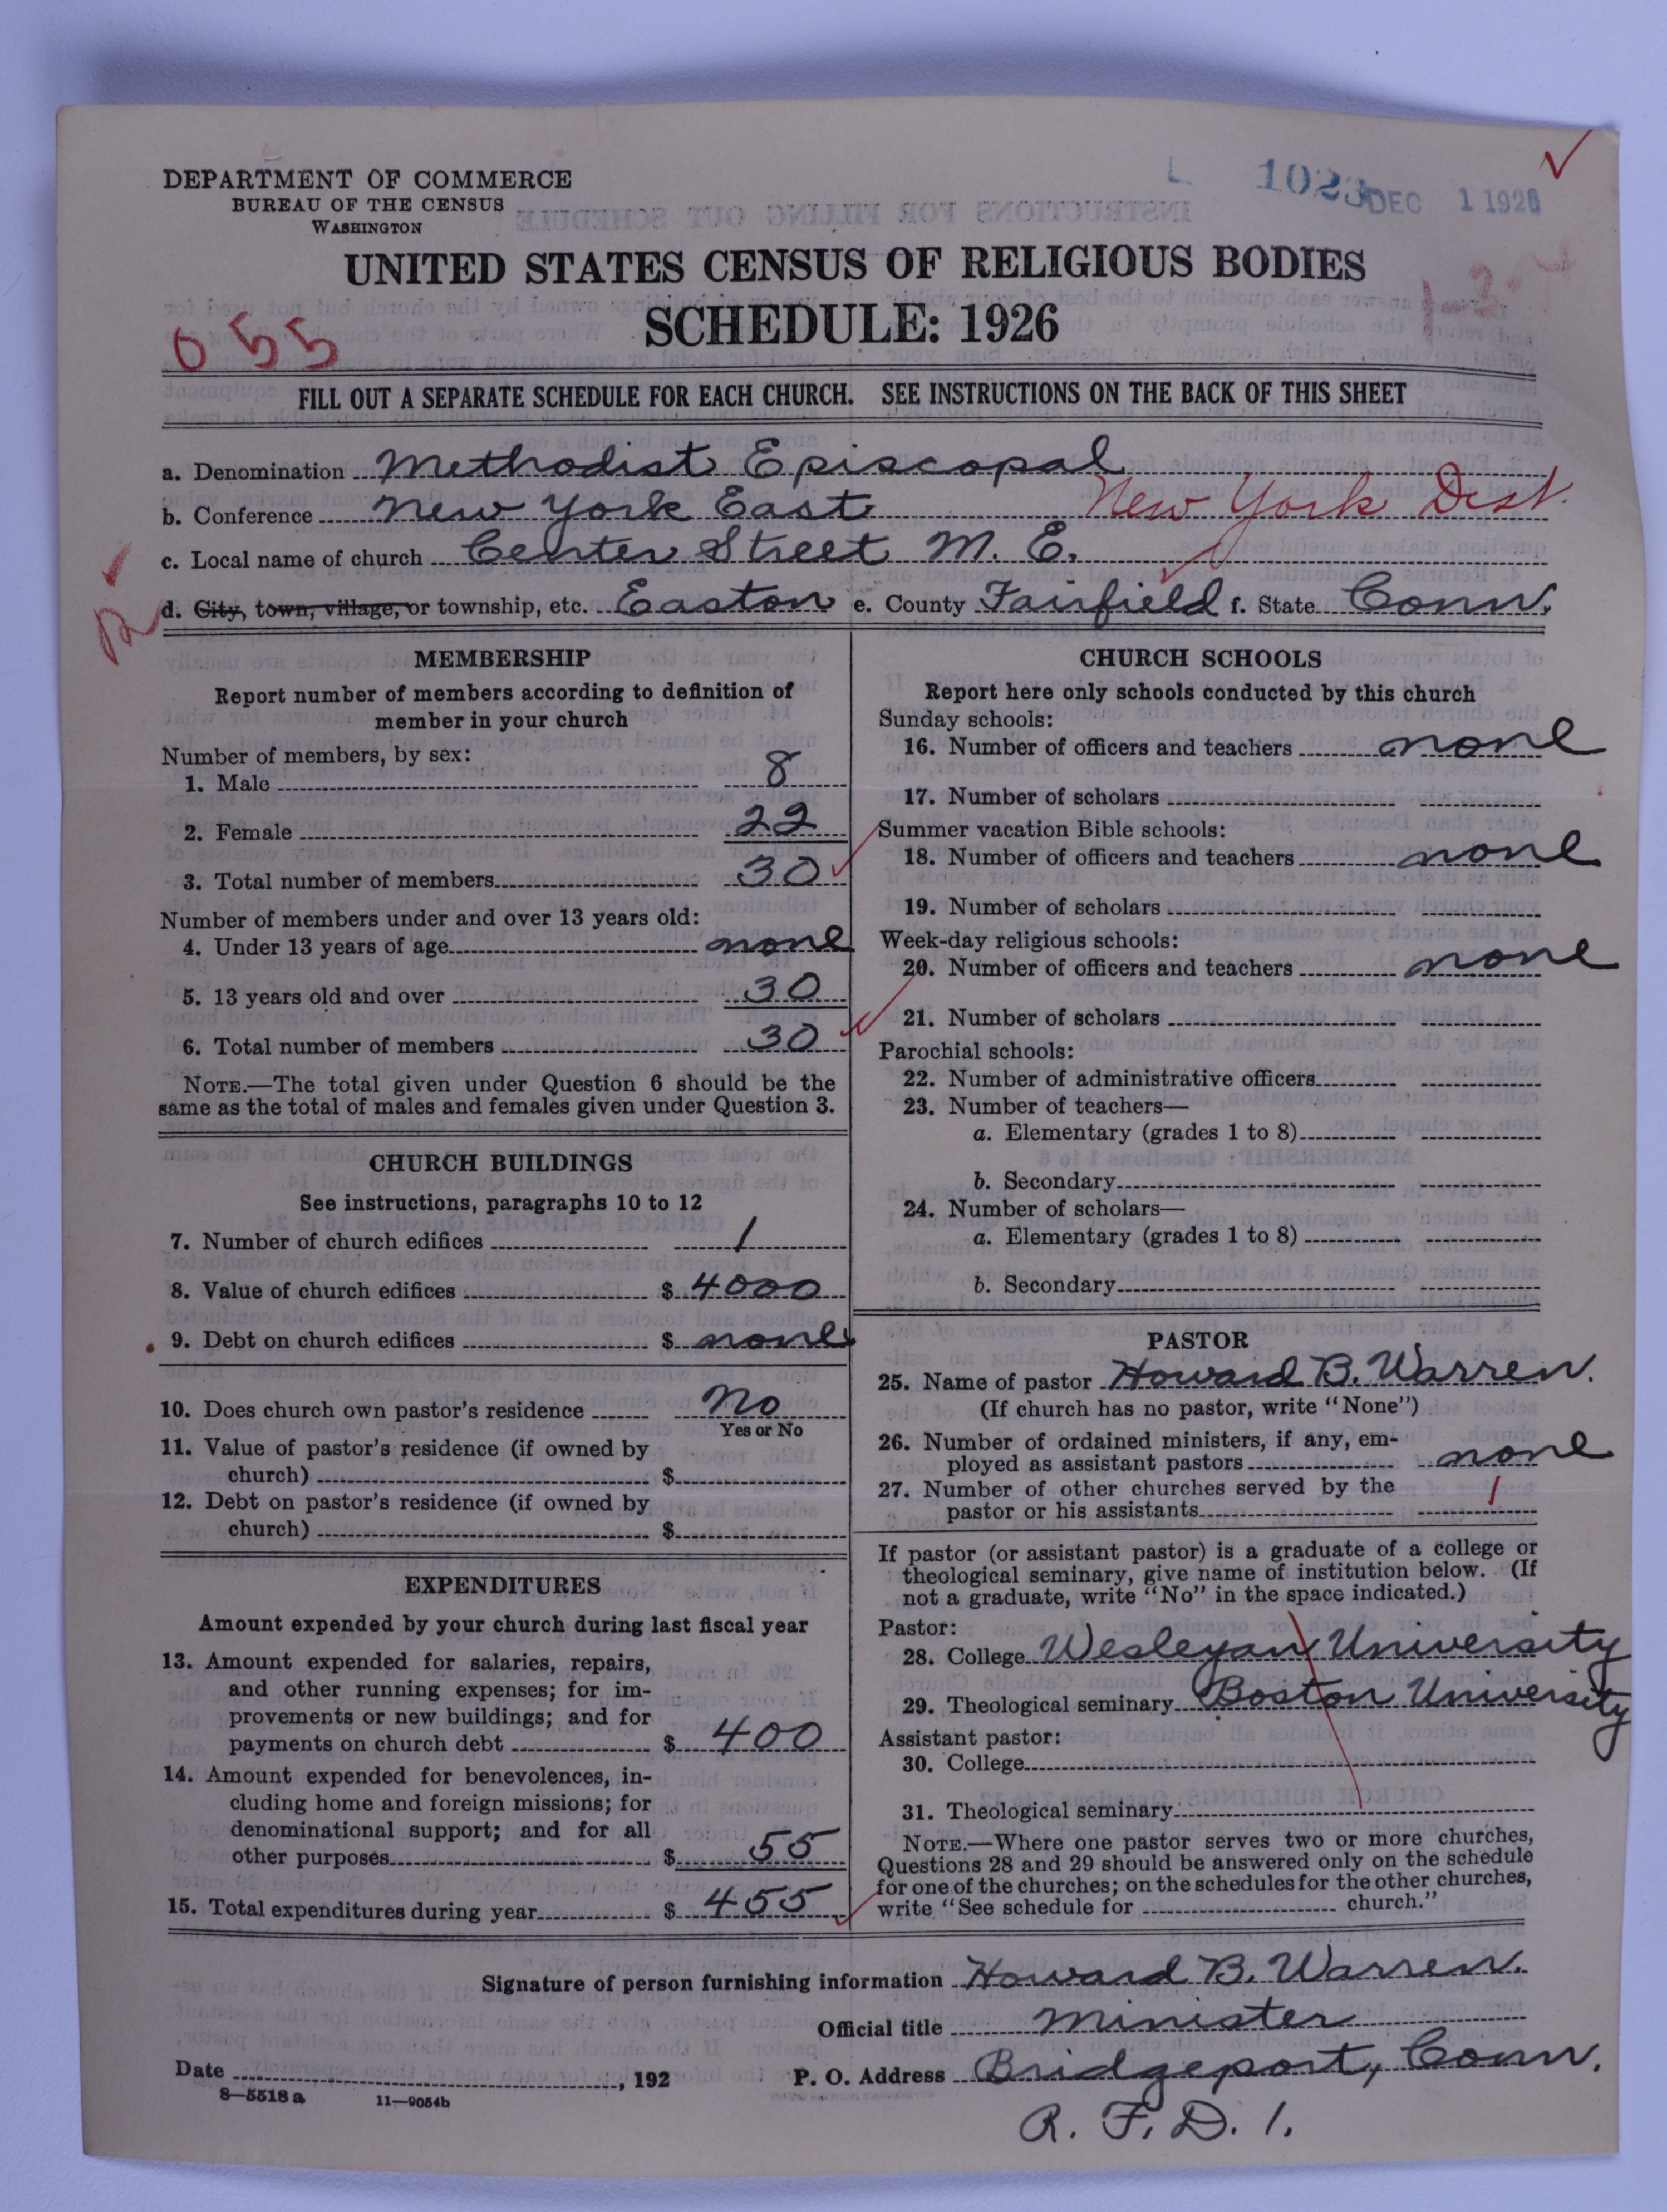 DEPARTMENT OF COMMERCE
BUREAU OF THE CENSUS
WASHINGTON
1023 DEC 1 1926
UNITED STATES CENSUS OF RELIGIOUS BODIES
SCHEDULE: 1926
055
FILL OUT A SEPARATE SCHEDULE FOR EACH CHURCH. SEE INSTRUCTIONS ON THE BACK OF THIS SHEET
a. Denomination Methodist Episcopal
b. Conference New York East New York Dist.
c. Local name of church Center Street M. E.
R
d. City, town, village, or township, etc. Easton e. County Fairfield f. State Conn.
MEMBERSHIP
Report number of members according to definition of
member in your church
Number of members, by sex:
1. Male 8
2. Female 22
3. Total number of members 30
Number of members under and over 13 years old:
4. Under 13 years of age none
5. 13 years old and over 30
6. Total number of members 30
NOTE.—The total given under Question 6 should be the
same as the total of males and females given under Question 3.
CHURCH BUILDINGS
See instructions, paragraphs 10 to 12
7. Number of church edifices 1
8. Value of church edifices $ 4000
9. Debt on church edifices $ none
10. Does church own pastor's residence No
Yes or No
11. Value of pastor's residence (if owned by
church) $
12. Debt on pastor's residence (if owned by
church) $
EXPENDITURES
Amount expended by your church during last fiscal year
13. Amount expended for salaries, repairs,
and other running expenses; for im-
provements or new buildings; and for
payments on church debt $ 400
14. Amount expended for benevolences, in-
cluding home and foreign missions; for
denominational support; and for all
other purposes $ 55
15. Total expenditures during year $ 455
CHURCH SCHOOLS
Report here only schools conducted by this church
Sunday schools:
16. Number of officers and teachers none
17. Number of scholars
Summer vacation Bible schools:
18. Number of officers and teachers none
19. Number of scholars
Week-day religious schools:
20. Number of officers and teachers none
21. Number of scholars
Parochial schools:
22. Number of administrative officers
23. Number of teachers—
a. Elementary (grades 1 to 8)
b. Secondary
24. Number of scholars—
a. Elementary (grades 1 to 8)
b. Secondary
PASTOR
25. Name of pastor Howard B. Warren.
(If church has no pastor, write "None")
26. Number of ordained ministers, if any, em-
ployed as assistant pastors none
27. Number of other churches served by the
pastor or his assistants 1
If pastor (or assistant pastor) is a graduate of a college or
theological seminary, give name of institution below. (If
not a graduate, write "No" in the space indicated.)
Pastor:
28. College Wesleyan University
29. Theological seminary Boston University
Assistant pastor:
30. College
31. Theological seminary
NOTE.—Where one pastor serves two or more churches,
Questions 28 and 29 should be answered only on the schedule
for one of the churches; on the schedules for the other churches,
write "See schedule for church."
Signature of person furnishing information Howard B. Warren.
Official title Minister
Date , 192 P. O. Address Bridgeport, Conn.
8—5518 a 11—9054b
R. F. D. 1.